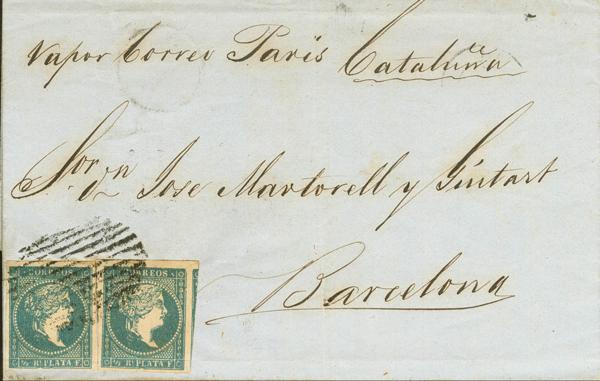 Vapor Correo París Cataluña
Sor Dn Jose Martorell y Guitart
Barcelona
CORREOS CORREOS
½ RL PLATA F. ½ RL PLATA F.